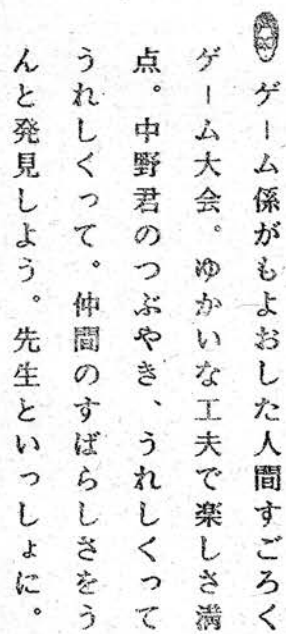 ゲーム係がもよおした人間すごろく
ゲーム大会。ゆかいな工夫で楽しさ満
点。中野君のつぶやき、うれしくって
うれしくって。仲間のすばらしさをう
んと発見しよう。先生といっしょに。